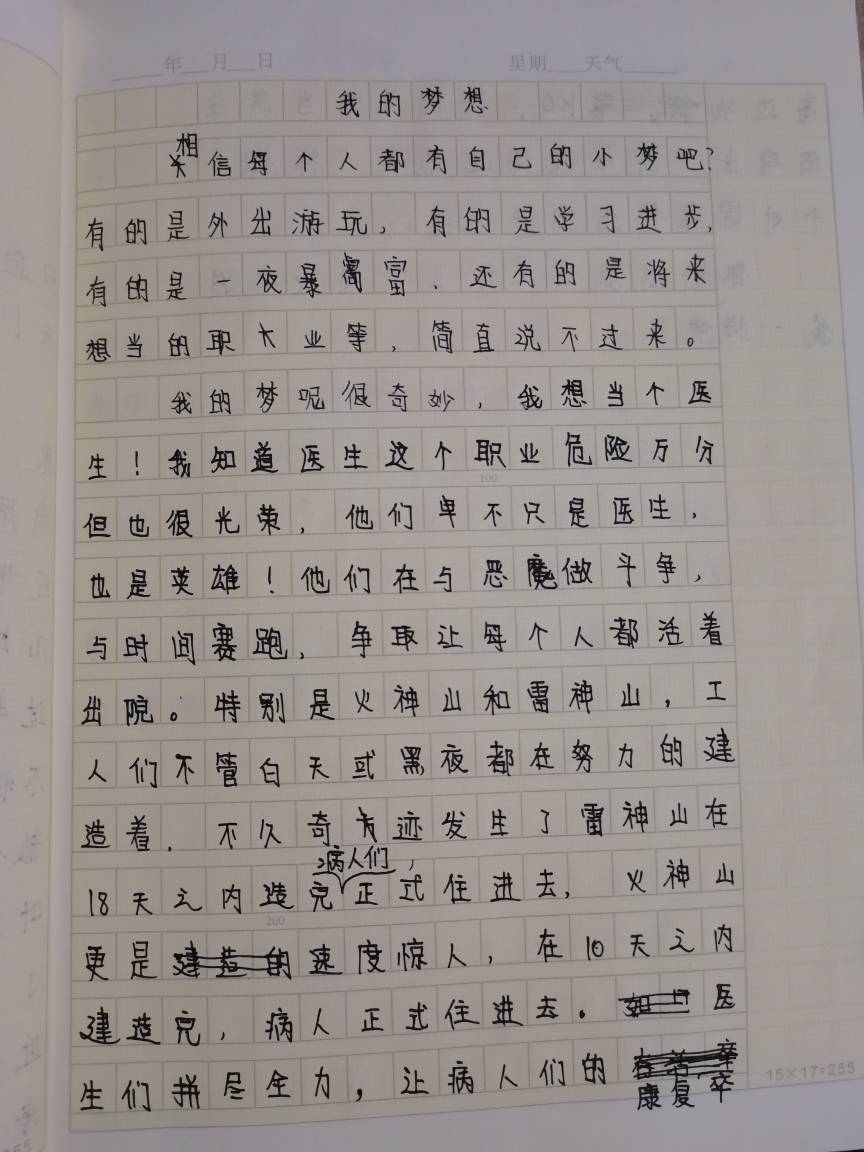 年 月 日 星期 天气
我的梦想
相信每个人都有自己的小梦吧?
有的是外出游玩,有的是学习进步,
有的是一夜暴富.还有的是将来
想当的职业等,简直说不过来。
我的梦呢很奇妙,我想当个医
生!我知道医生这个职业危险万分
100
但也很光荣,他们卑不只是医生,
也是英雄!他们在与恶魔做斗争,
与时间赛跑,争取让每个人都活着
出院。特别是火神山和雷神山,工
人们不管白天或黑夜都在努力的建
造着.不久奇迹发生了雷神山在
18天之内造完,病人们正式住进去,火神山
200
更是速度惊人,在10天之内
建造完,病人正式住进去。医
生们拼尽全力,让病人们的康复卒
15×17=255